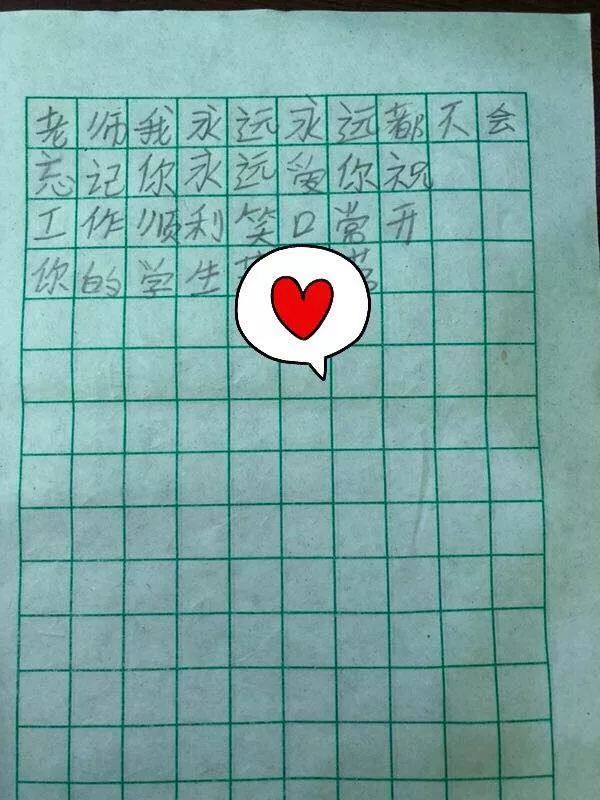 老师我永远永远都不会
忘记你永远爱你祝
工作顺利笑口常开
你的学生